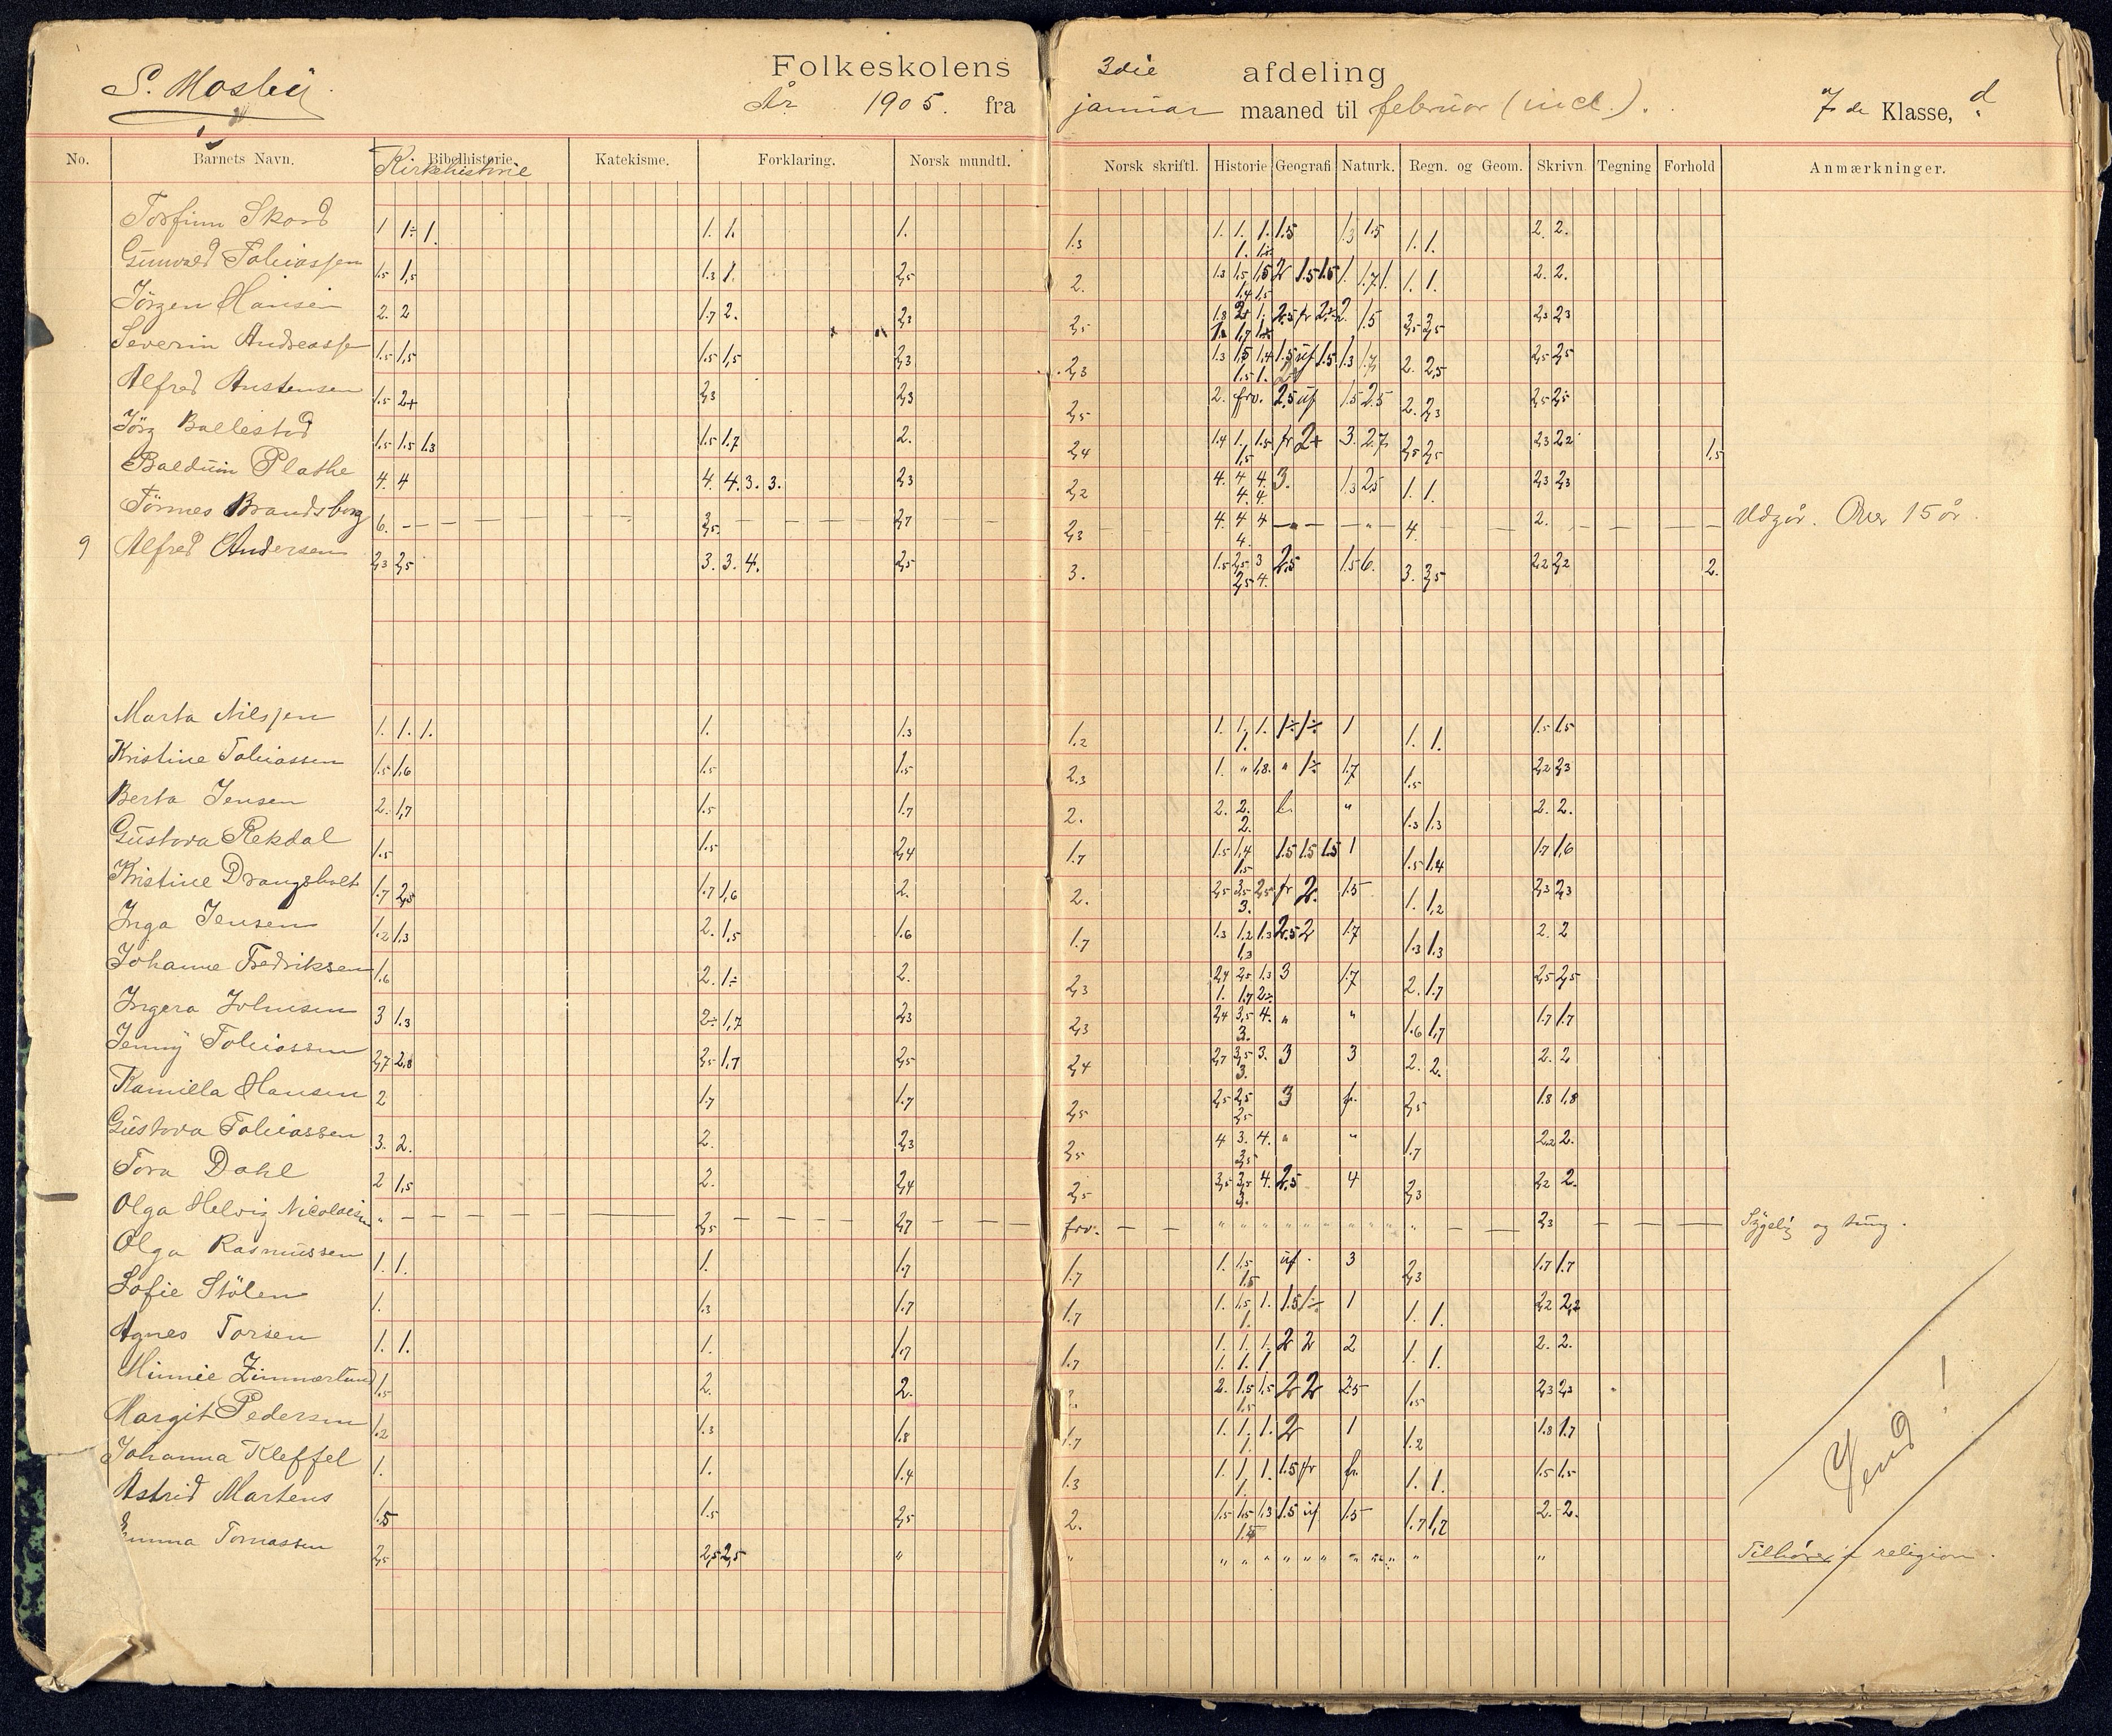 S. Mosby
Folkeskolens 3die afdeling
År 1905. fra januar maaned til februar (incl.). 7 de Klasse, d
No. Barnets Navn. Bibelhistorie Kirkehistorie Katekisme. Forklaring. Norsk mundtl. Norsk skriftl. Historie Geografi Naturk. Regn. og Geom. Skrivn. Tegning Forhold Anmærkninger.
Torfinn Skord 1 1÷ 1. 1. 1. 1. 1.3 1. 1. 1. 1.5 1.3 1.5 1. 1. 2. 2.
Gunvald Tobiassen 1.5 1,5 1.3 1. 2,5 2. 1.3 1,5 1,5 2 1.5 1.5 1. 1.7 1. 1. 1. 2. 2.
Jörgen Hansen 2. 2 1.7 2. 2,3 2,5 2,3 2,3
Severin Andreassen 1.5 1,5 1.5 1,5 2,3 2,3 1.3 1,5 1,4 1.5 uf 1.5 1.3 1.7 2. 2,5 2,5 2,5
Alfred Austensen 1.5 2+ 2,3 2,3 2,5 2. frv. 2.5 uf 1.5 2.5 2. 2,3 2,5 2,5
Jörg Ballestad 1.5 1.5 1.3 1.5 1.7 2. 2,4 1.4 1. 1.5 fr 2+ 3. 2.7 2,5 2,5 2,3 2,2 1,5
Balduin Plathe 4. 4 4. 4. 3. 3. 2,3 2,2 4. 4 4. 3. 1.3 2,5 1. 1. 2,3 2,3
Törnes Brandsborg 6. 2,7 2,3 4. 4 4 4. 2. Udgår. Over 15 år.
9 Alfred Andersen 2,3 2,5 3. 3. 4. 2,5 3. 1.5 2,5 3 2.5 1.5 6. 3. 3,5 2,2 2,2 2.
Marta Nilssen 1. 1. 1. 1. 1.3 1.2 1. 1. 1. 1÷ 1÷ 1 1. 1. 1.5 1.5
Kristine Tobiassen 1.5 1,6 1.5 1.5 2.3 1. " 1,8. " 1÷ 1.7 1.5 2,2 2,3
Berta Jensen 2. 1,7 1.5 1.7 2. 2. 2. " 1.3 1.3 2. 2.
Gustava Rekdal 1.5 1.5 2,4 1.7 1.5 1,4 1.5 1.5 1.5 1 1.5 1,4 1.7 1,6
Kristine Drangsholt 1.7 2,5 1.7 1,6 2. 2. 2,5 3,5 2,5 fr 2. 1.5 1. 1,2 2,3 2,3
Inga Jensen 1.2 1.3 2. 1,5 1.6 1.7 1.3 1,2 1.3 2.5 2 1.7 1.3 1.3 2. 2
Johanne Fredriksen 1.6 2. 1÷ 2. 2,3 2,4 2,5 1.3 3 1.7 2. 1.7 2,5 2,5
Ingera Johnsen 3 1.3 2÷ 1,7 2,3 2,3 2,4 3,5 4. " " 1.6 1,7 1.7 1.7
Jenny Tobiassen 2,7 2,8 2,5 1,7 2,5 2,4 2,7 3,5 3. 3 3 2. 2. 2. 2
Kamilla Hansen 2 1.7 1.7 2,5 2,5 2,5 3 fr. 2,5 1.8 1,8
Gustava Tobiassen 3. 2. 2. 2,3 3,5 4 3. 4. " " 1.7 2.2 2.
Tora Dahl 2 1,5 2. 2,4 2,5 3,5 3,5 4. 2.5 4 2,3 2,2 2.
Olga Helvig Nicolaisen " 2,5 2,7 frv. 2,3 Sygelig og tung.
Olga Rasmussen 1. 1. 1. 1.7 1.7 1. 1,5 uf. 3 2,3 1.7 1.7
Sofie Stölen 1. 1.3 1.7 1.7 1. 1.5 1. 1.5 1÷ 1 1. 1. 2,2 2,2
Agnes Torsen 1. 1. 1. 1.7 1.7 1. 1. 1. 2 2 2 1. 1. 2. 2.
Minnie Zimmerlund 1.5 2. 2. 2. 2. 1.5 1,5 2 2 2.5 1.5 2,3 2,3
Margit Pedersen 1.2 1.3 1.8 1.7 1. 1. 1. 2 1 1.2 1.8 1.7
Johanna Kleffel 1. 1. 1.4 1.3 1. 1. 1. 1.5 fr fr. 1. 1. 1.5 1.5
Astrid Martens 1.5 1.5 2,5 2. 1.5 1.5 1.3 1.5 uf 1.5 1.7 1,2 2. 2.
Emma Tomassen 2,5 2,5 2,5 " " religion.